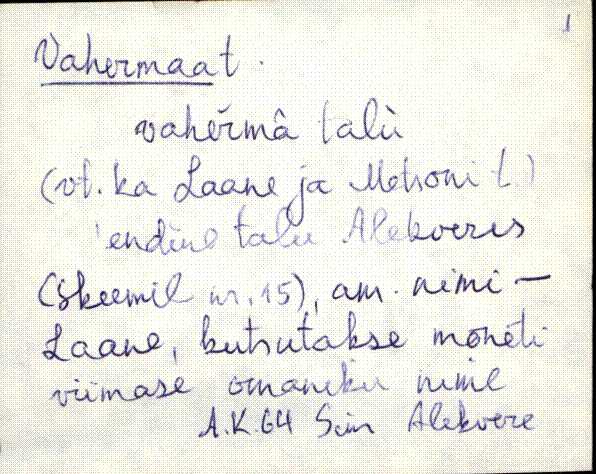 1
Vahermaa t.
vahèrmâ talù
(vt. ka Laane ja Metsoni t.)
endine talu Alekveres
(skeemil nr. 15), am. nimi –
Laane, kutsutakse mõneti
viimase omaniku nime
A.K. 64 Sim Alekvere